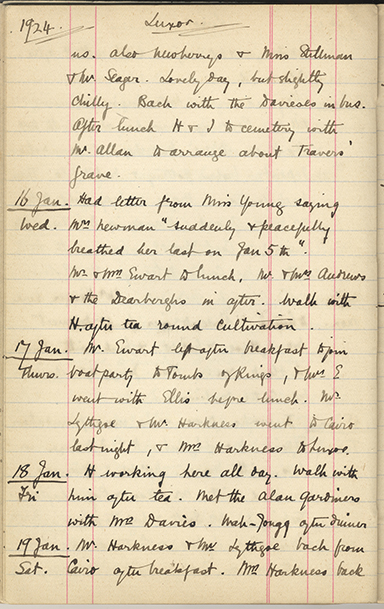 1924. Luxor.
us. also Newberrys & Mrs Stillman
& Mr Seager. Lovely day, but slightly
chilly. Back with the Davieses in bus.
After lunch H & I to cemetery with
Mr Allan to arrange about Travers'
grave.
16 Jan. Had letter from Miss Young saying
Wed. Mrs Newman "suddenly & peacefully
breathed her last on Jan 5th".
Mr & Mrs Ewart to lunch, Mr & Mrs Andrews
& the Dearberghs in after. Walk with
H. after tea round cultivation.
17 Jan. Mr. Ewart left after breakfast to join
Thurs. boat party to Tombs of Kings, & Mrs E
went with Ellis before lunch. Mr
Lythgoe & Mr Harkness went to Cairo
last night, & Mrs Harkness to Luxor.
18 Jan. H working here all day. Walk with
Fri him after tea. Met the Alan Gardiners
with Mrs Davies. Mah-Jongg after dinner
19 Jan. Mr Harkness & Mr Lythgoe back from
Sat. Cairo after breakfast. Mrs Harkness back